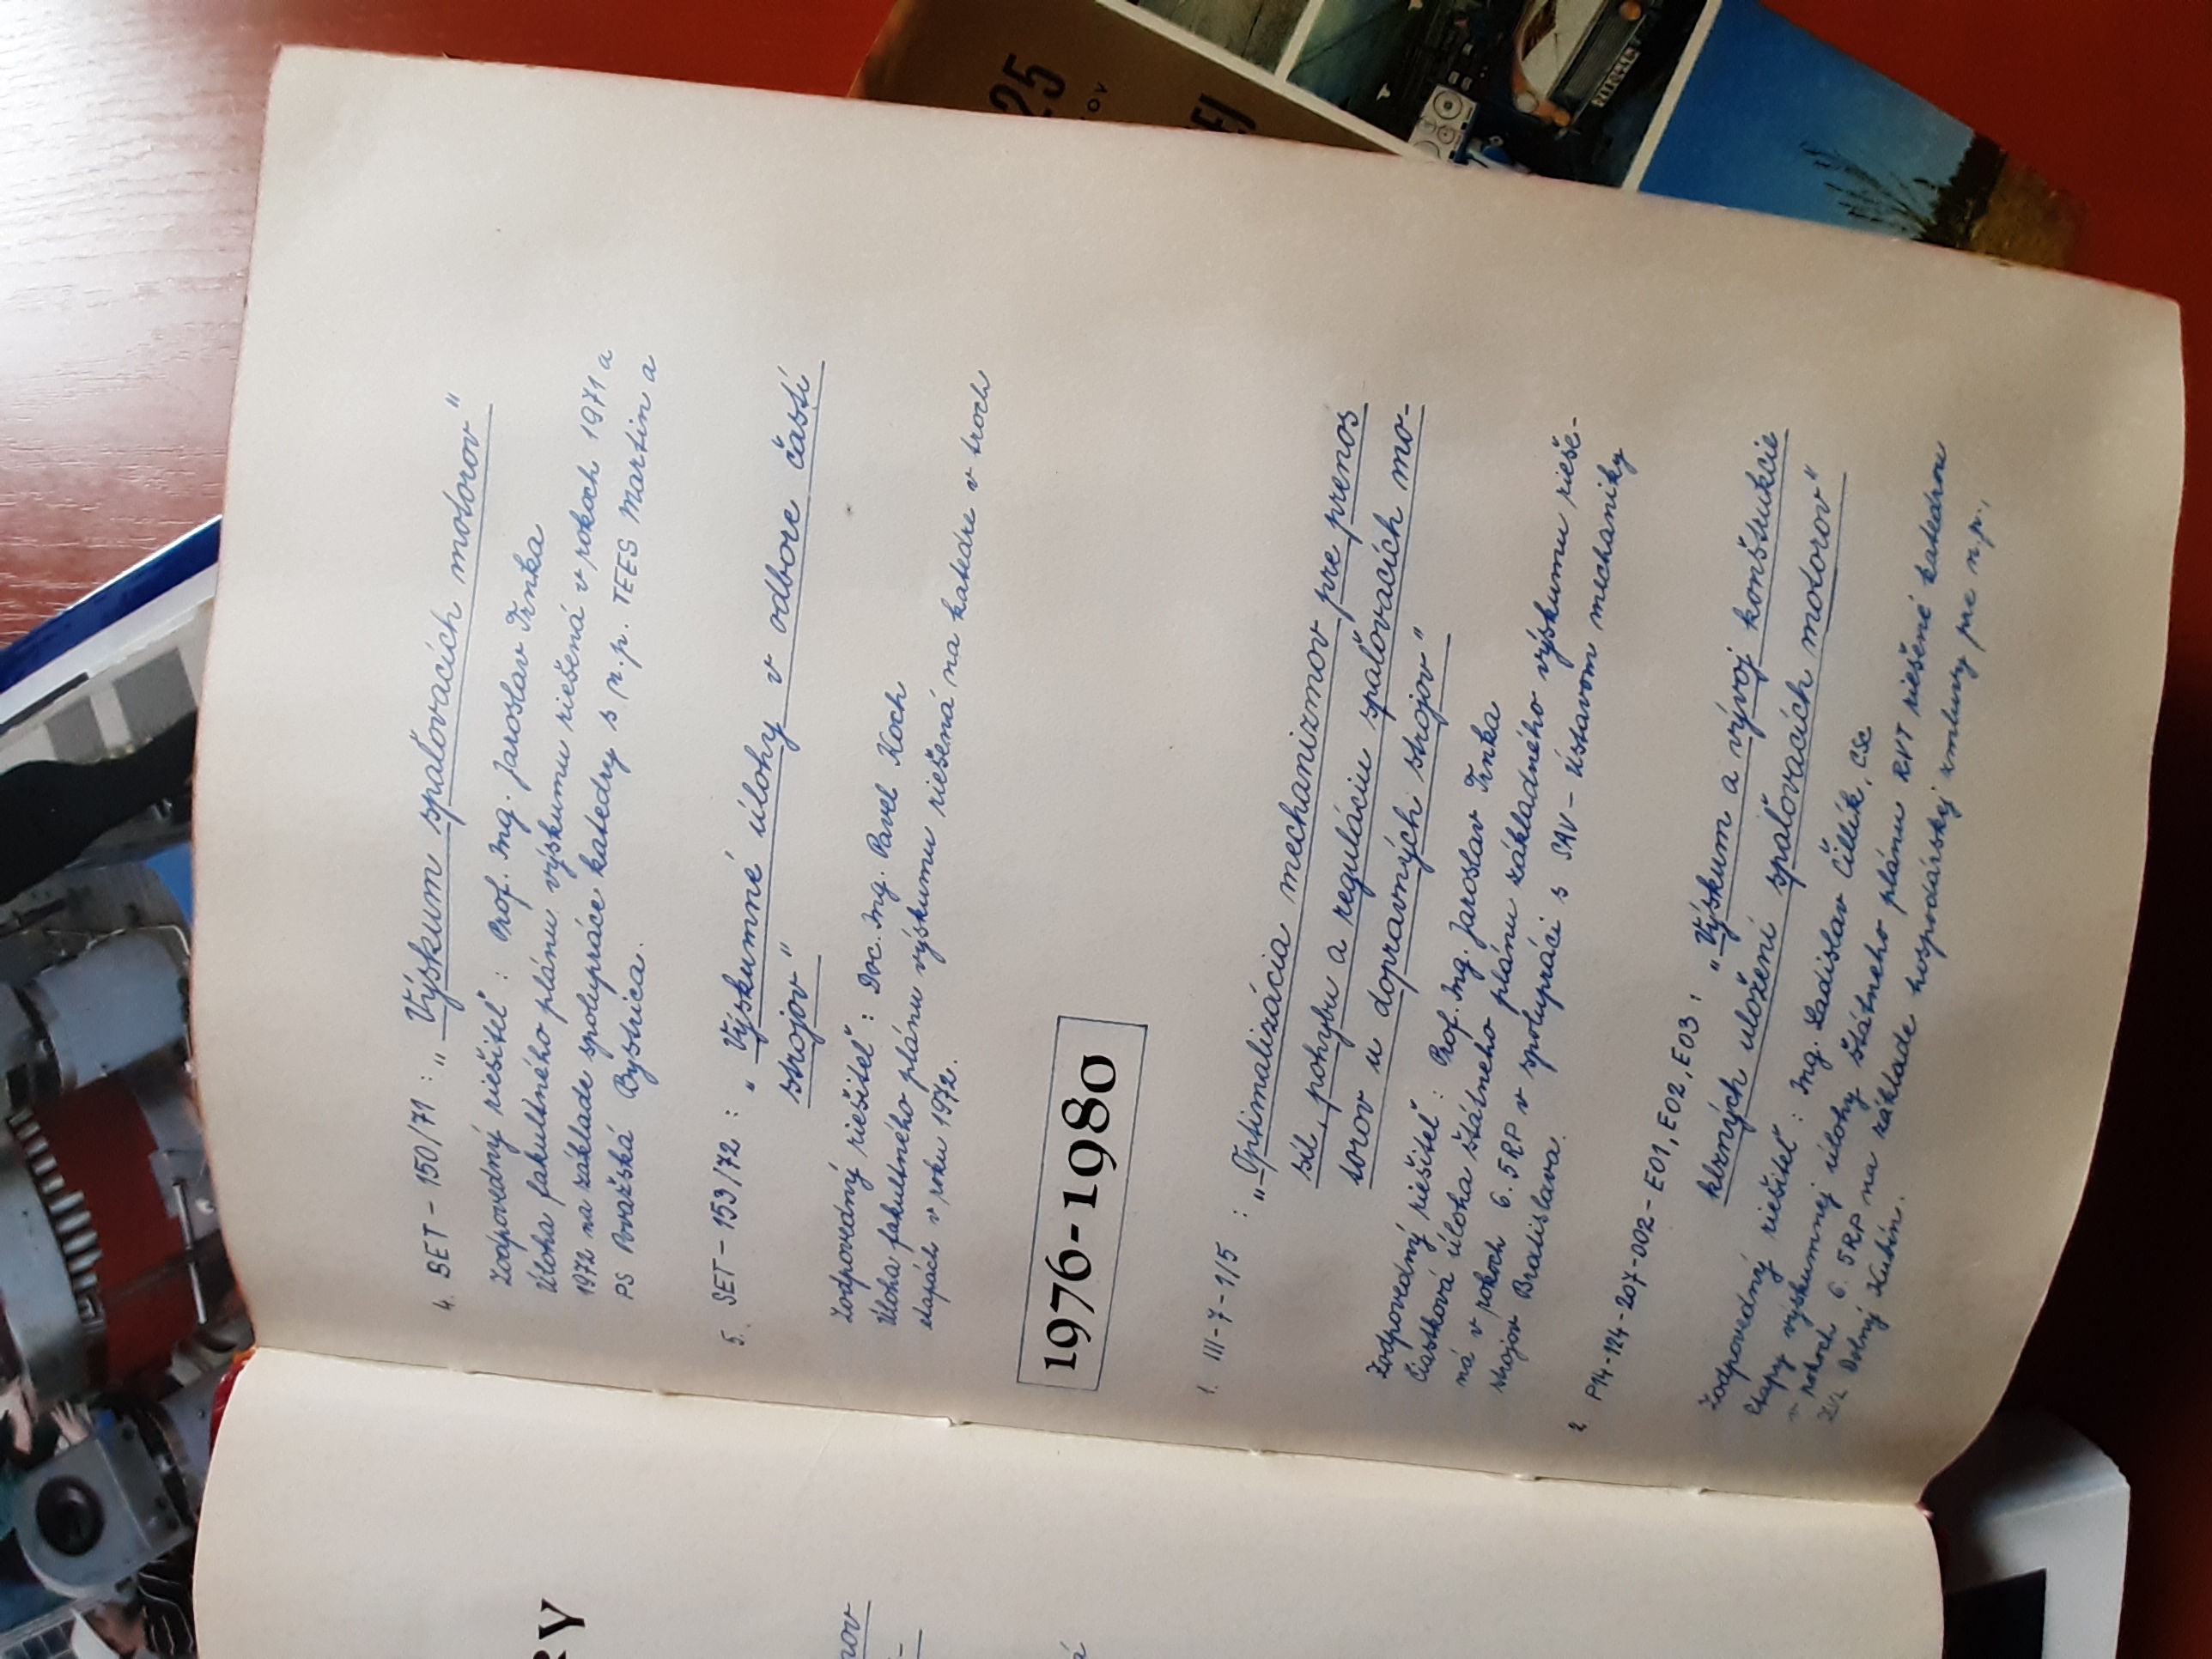 4. BET - 150/71 : „Výskum spaľovacích motorov"
Zodpovedný riešiteľ : Prof. Ing. Jaroslav Trnka
Úloha fakultného plánu výskumu riešená v rokoch 1971 a
1972 na základe spolupráce katedry s n.p. TEES Martin a
PS Považská Bystrica.
5. SET - 153/72 : „Výskumné úlohy v odbore častí
strojov"
Zodpovedný riešiteľ : Doc. Ing. Pavel Koch
Úloha fakultného plánu výskumu riešená na katedre v troch
etapách v roku 1972.
1976-1980
1. III-7-1/5 : „Optimalizácia mechanizmov pre prenos
síl, pohybu a reguláciu spaľovacích mo-
torov u dopravných strojov"
Zodpovedný riešiteľ : Prof. Ing. Jaroslav Trnka
Čiastková úloha štátneho plánu základného výskumu rieše-
ná v rokoch 6. 5RP v spolupráci s SAV - Ústavom mechaniky
strojov Bratislava.
2 P14-124-207-002-E01, E02, E03 : „Výskum a vývoj konštrukcie
klzných uložení spaľovacích motorov"
Zodpovedný riešiteľ : Ing. Ladislav Cillík, CSc
Etapy výskumnej úlohy štátneho plánu RVT riešené katedrou
v rokoch 6. 5RP na základe hospodárskej zmluvy pre n.p.,
ZVL Dolný Kubín.
RY
nov
25
OV
EJ